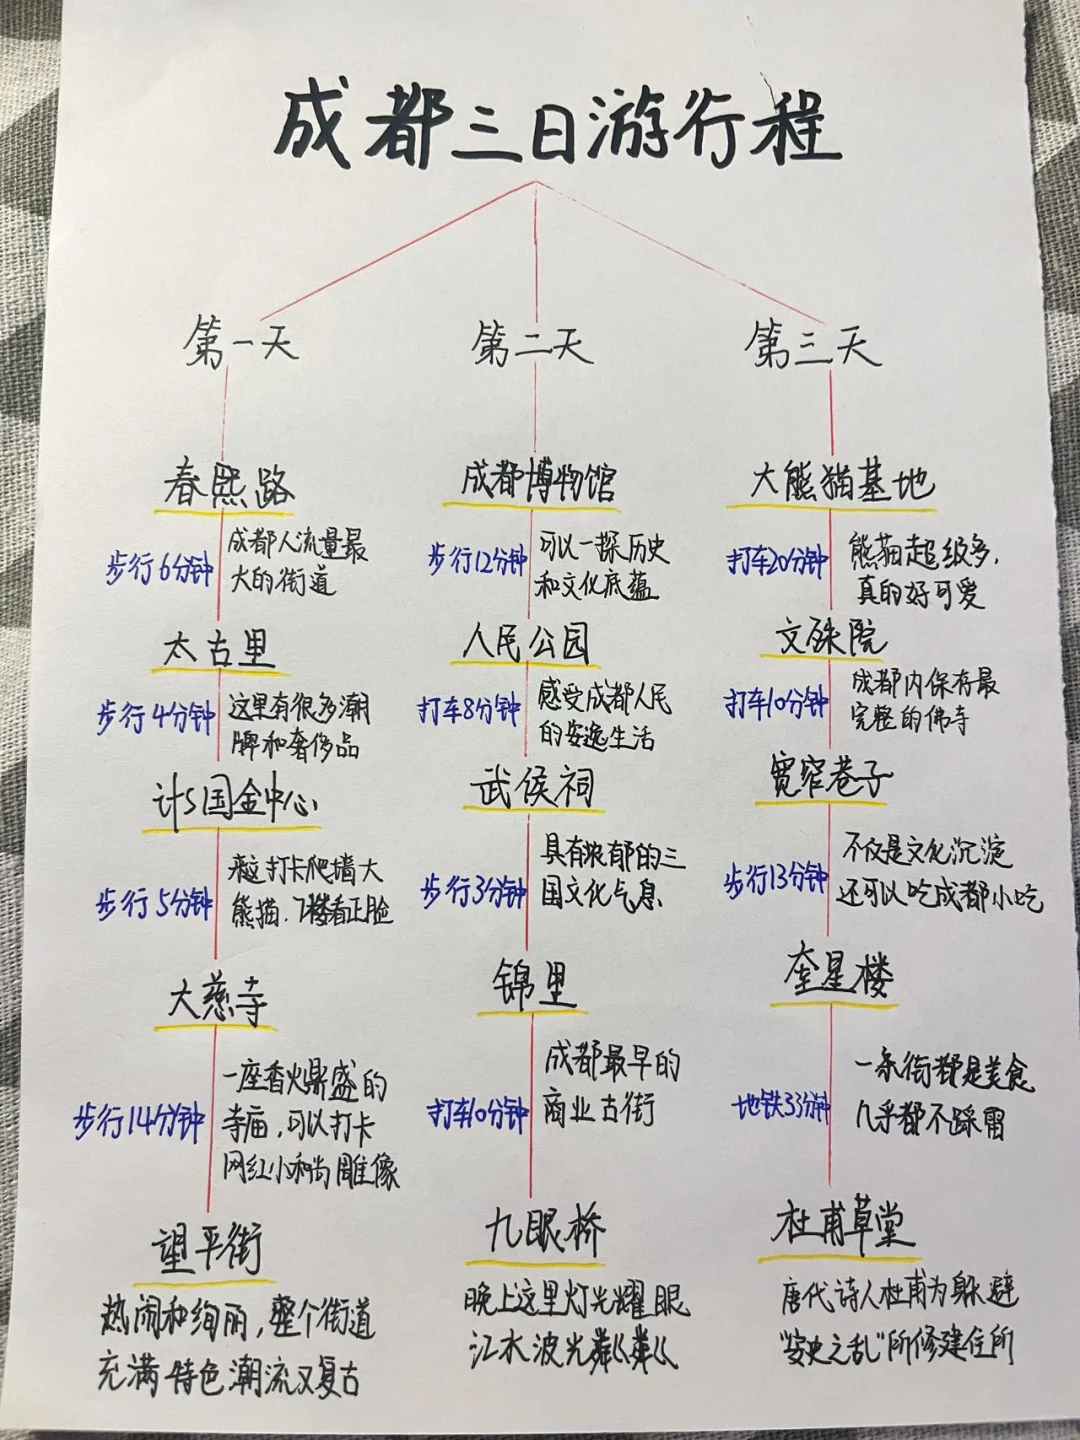 成都三日游行程
第一天
春熙路
步行6分钟
成都人流量最
大的街道
太古里
步行4分钟
这里有很多潮
牌和奢侈品
计S国金中心
步行5分钟
来这打卡爬墙大
熊猫.7楼看正脸
大慈寺
步行14分钟
一座香火鼎盛的
寺庙,可以打卡
网红小和尚雕像
望平街
热闹和绚丽,整个街道
充满特色潮流又复古
第二天
成都博物馆
步行12分钟
可以一探历史
和文化底蕴
人民公园
打车8分钟
感受成都人民
的安逸生活
武侯祠
步行3分钟
具有浓郁的三
国文化气息
锦里
打车10分钟
成都最早的
商业古街
九眼桥
晚上这里灯光耀眼
江水波光粼粼
第三天
大熊猫基地
打车20分钟
熊猫超级多,
真的好可爱
文殊院
打车10分钟
成都内保存最
完整的佛寺
宽窄巷子
步行13分钟
不仅是文化沉淀
还可以吃成都小吃
奎星楼
地铁33分钟
一条街都是美食
几乎都不踩雷
杜甫草堂
唐代诗人杜甫为躲避
"安史之乱"所修建住所